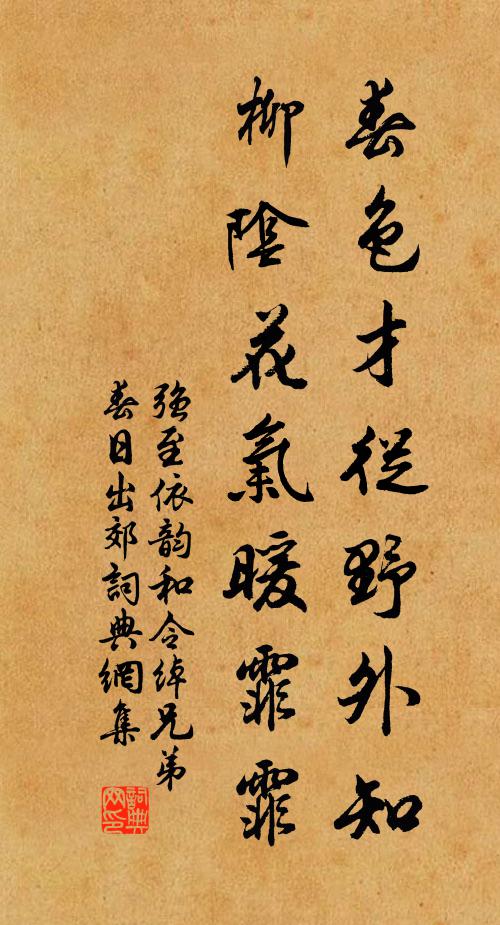 春色才從野外知
柳陰花氣暖霏霏
強至依韵和令綽兄弟
春日出郊詞典網集
詞典网印